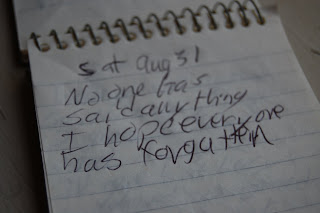 Sat Aug 31
No one has
said anything
I hope everyone
has forgatten